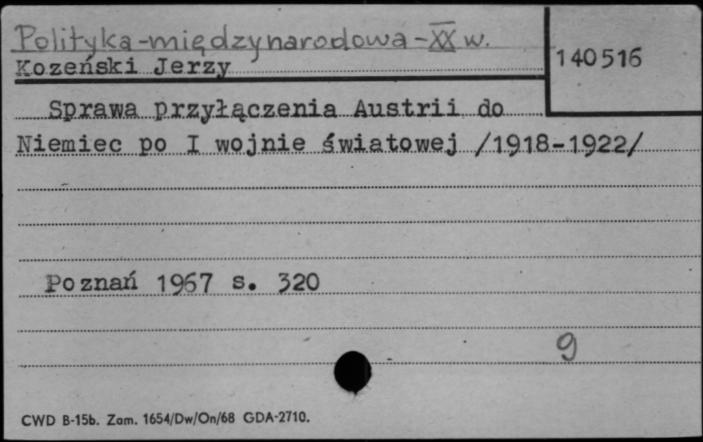 Polityka-międzynarodowa-XX w.
Kozeński Jerzy
140516
Sprawa przyłączenia Austrii do
Niemiec po I wojnie światowej /1918-1922/
Poznań 1967 s. 320
9
CWD B-15b. Zam. 1654/Dw/On/68 GDA-2710.